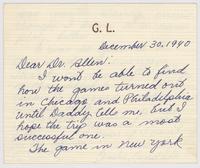 G. L.
December 30, 1940
Dear Dr. Allen:
I won't be able to find
how the games turned out
in Chicago and Philadelphia
until Daddy tells me, but I
hope the trip was a most
successful one.
The game in new york